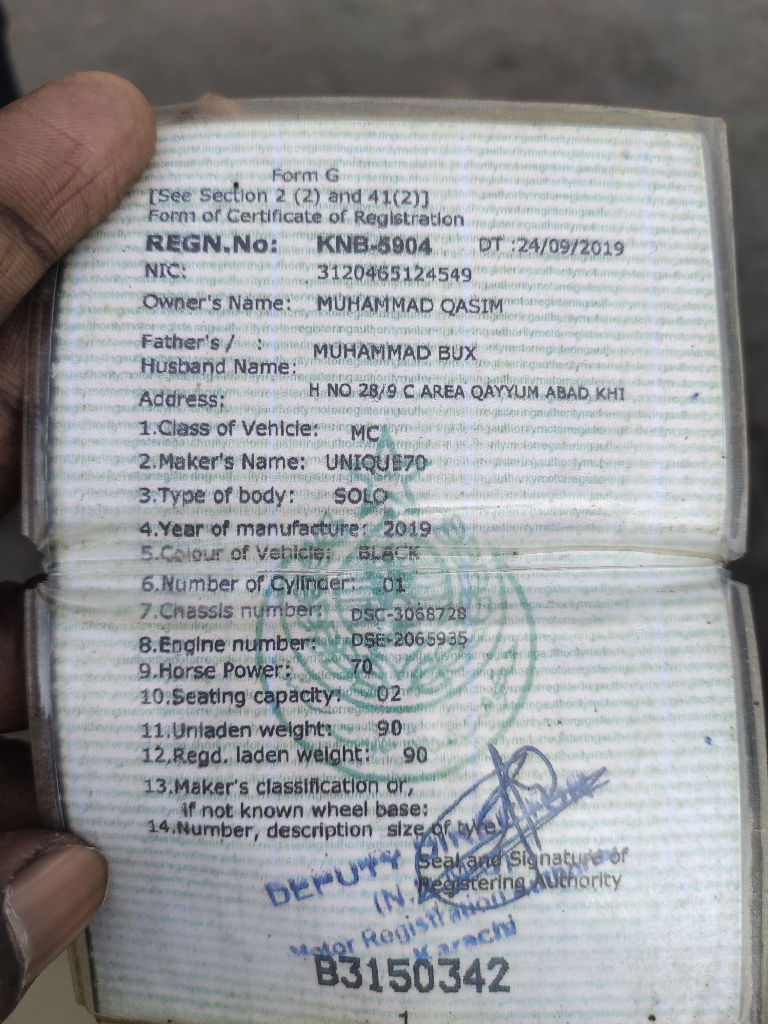 Form G
[See Section 2 (2) and 41(2)]
Form of Certificate of Registration
REGN.No: KNB-5904 DT :24/09/2019
NIC: 3120465124549
Owner's Name: MUHAMMAD QASIM
Father's / :
Husband Name: MUHAMMAD BUX
Address: H NO 28/9 C AREA QAYYUM ABAD KHI
1.Class of Vehicle: MC
2.Maker's Name: UNIQUE70
3.Type of body: SOLO
4.Year of manufacture: 2019
5.Colour of Vehicle: BLACK
6.Number of Cylinder: 01
7.Chassis number: DSC-3068728
8.Engine number: DSE-2065935
9.Horse Power: 70
10.Seating capacity: 02
11.Unladen weight: 90
12.Regd. laden weight: 90
13.Maker's classification or,
if not known wheel base:
14.Number, description size of tyre
Seal and Signature of
Registering Authority
DEPUTY
Motor Registration
Karachi
B3150342
1